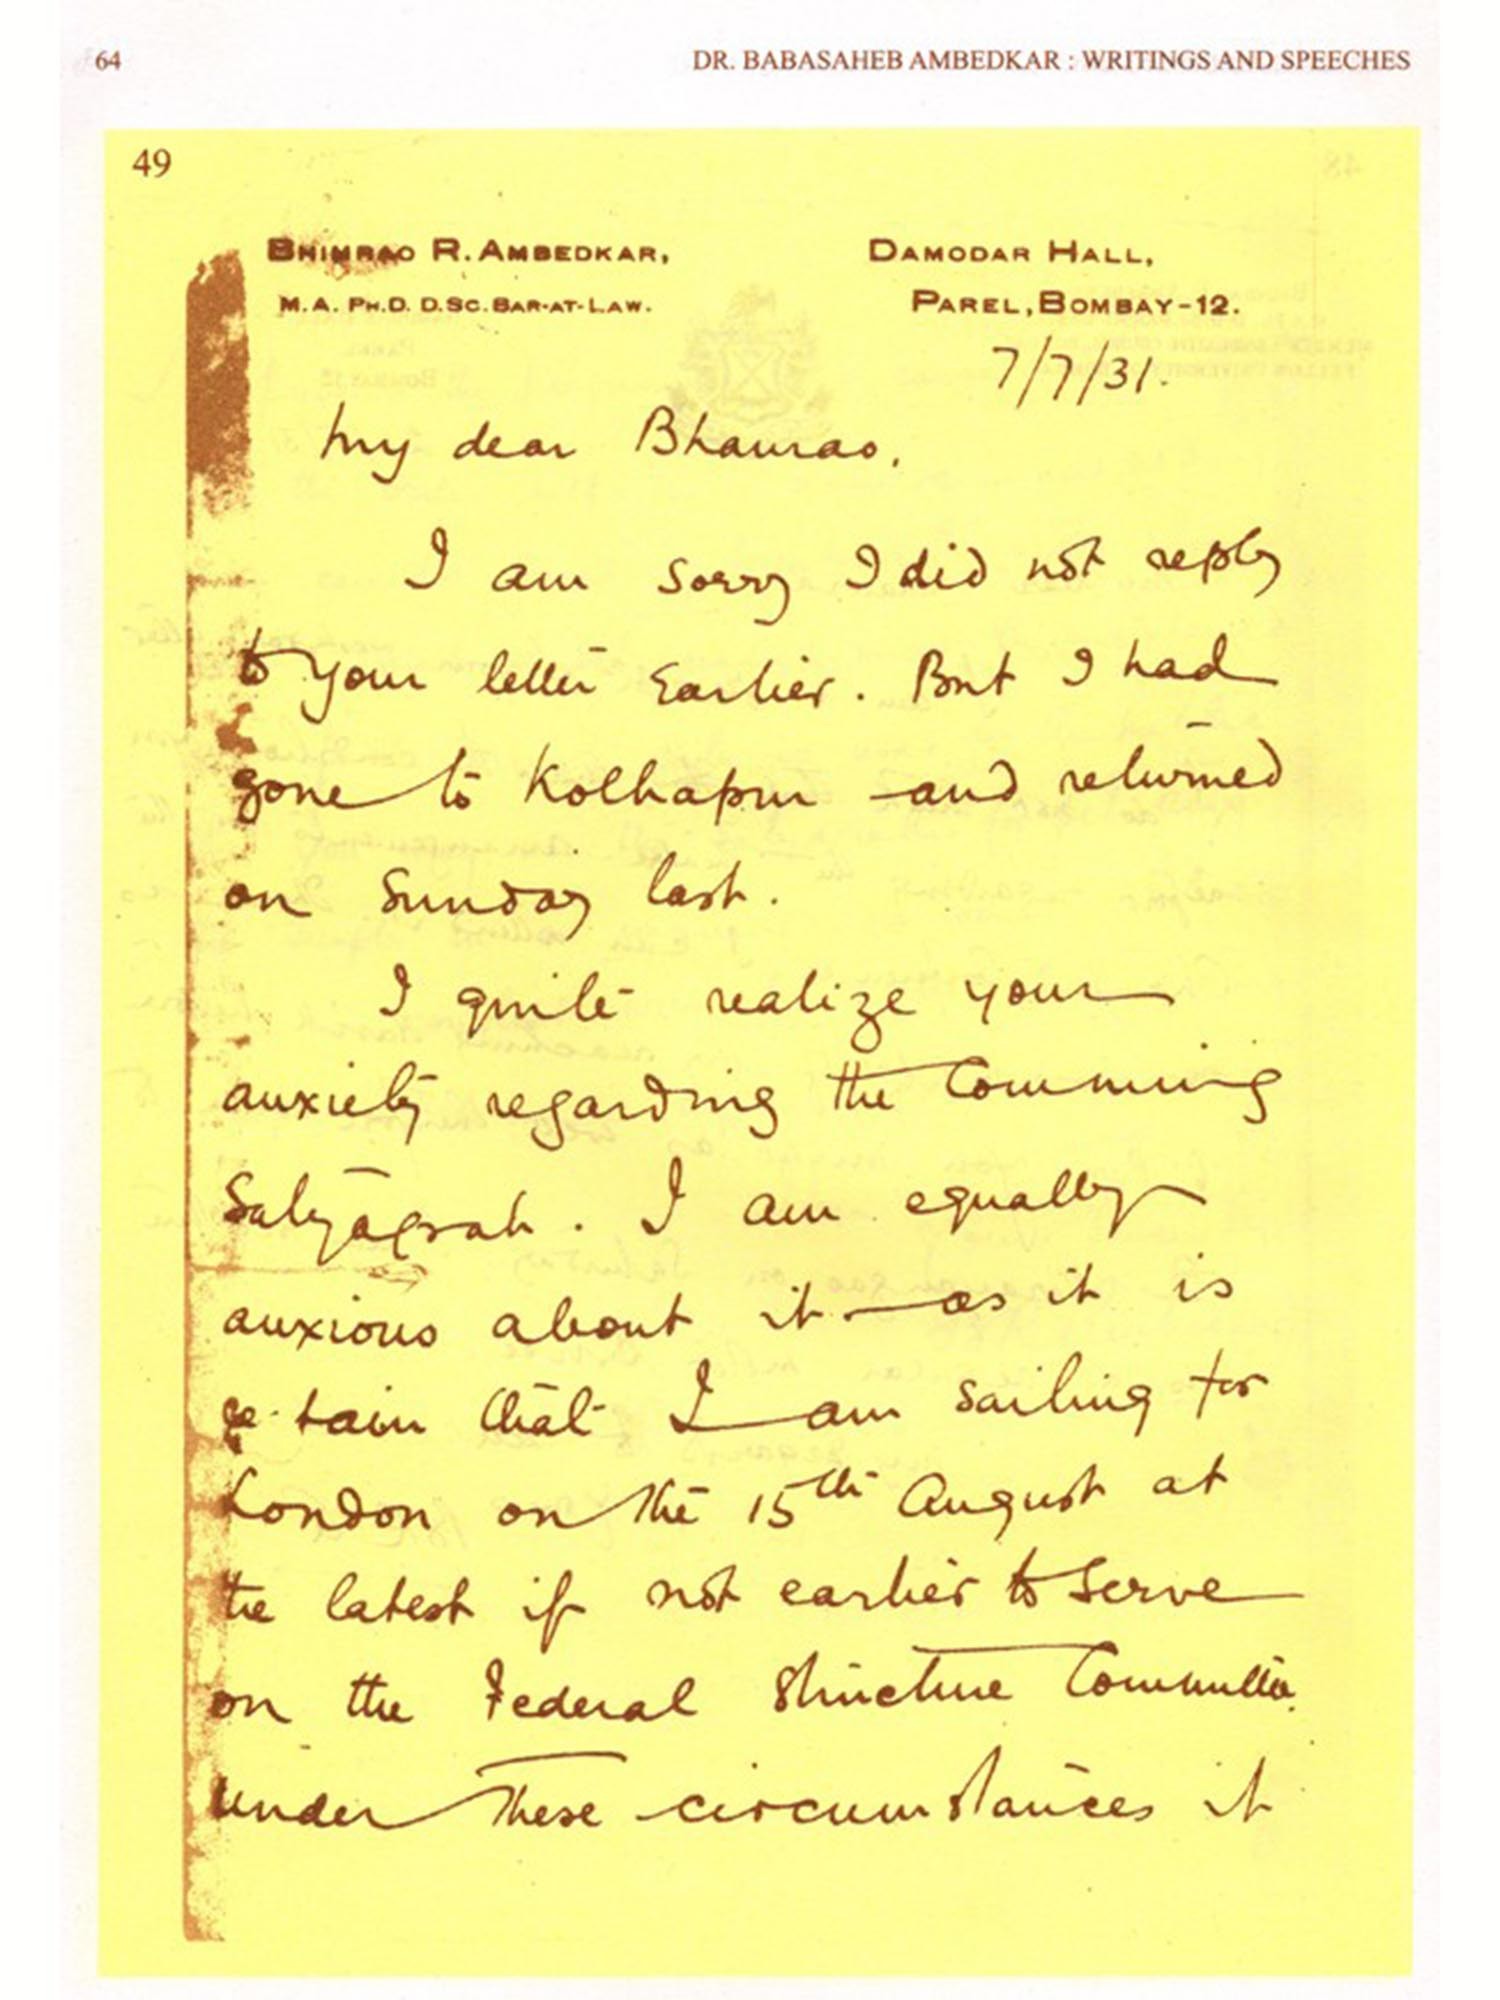 64
DR. BABASAHEB AMBEDKAR : WRITINGS AND SPEECHES
49
BHIMRAO R. AMBEDKAR,
M.A. PH.D. D.SC. BAR-AT-LAW.
DAMODAR HALL,
PAREL, BOMBAY-12.
7/7/31.
My dear Bhaurao,
I am sorry I did not reply
to your letter Earlier. But I had
gone to Kolhapur and returned
on Sunday last.
I quite realize your
anxiety regarding the Comming
Satyagrah. I am equally
anxious about it as it is
certain that I am sailing for
London on the 15th August at
the latest if not earlier to serve
on the Federal Structure Committee.
Under these circumstances it